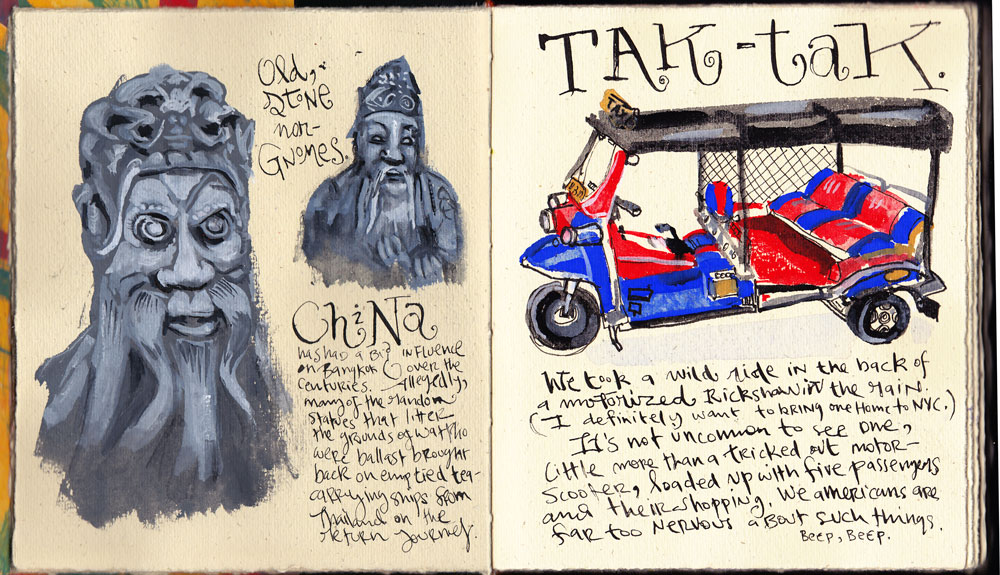 Old,
Stone
non-
Gnomes.
ChiNa
has had a Big influence
on Bangkok over the
centuries. Allegedly,
many of the random
statues that litter
the grounds of Wat Pho
were ballast brought
back on emptied tea-
carrying ships from
Thailand on the
return journey.
TAK-taK.
TAXI
We took a wild ride in the back of
a motorized Rickshaw in the rain.
(I definitely want to bring one Home to NYC.)
It's not uncommon to see one,
little more than a tricked out motor-
scooter, loaded up with five passengers
and their shopping. We americans are
far too nervous about such things.
Beep, Beep.